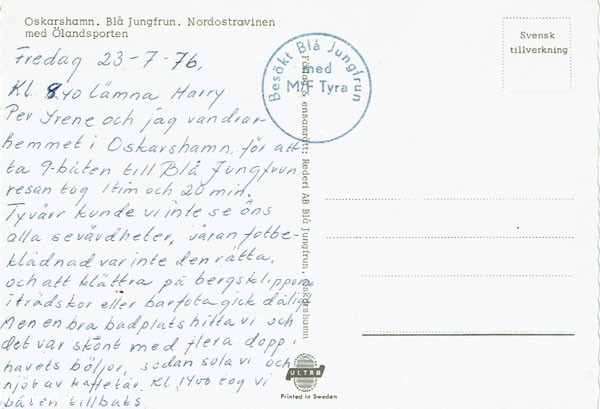 Oskarshamn. Blå Jungfrun. Nordostravinen
med Ölandsporten
Fredag 23-7-76.
Kl. 8.40 Lämna Harry
Per Yrene och jag vandrar-
hemmet i Oskarshamn, för att
ta 9-båten till Blå Jungfrun
resan tog 1 tim och 20 min.
Tyvärr kunde vi inte se öns
alla sevärdheter, våran fotbe-
klädnad var inte den rätta,
och att klättra på bergsklipporna
i träskor eller barfota gick dåligt
Men en bra badplats hitta vi och
det var skönt med flera dopp i
havets böljor, sedan sola vi och
njöt av kaffetår. Kl. 1400 tog vi
båten tillbaks.
Besökt Blå Jungfrun
med
M/F Tyra
Förlag & ensamrätt: Rederi AB Blå Jungfrun, Oskarshamn
Svensk
tillverkning
ULTRA
Printed in Sweden